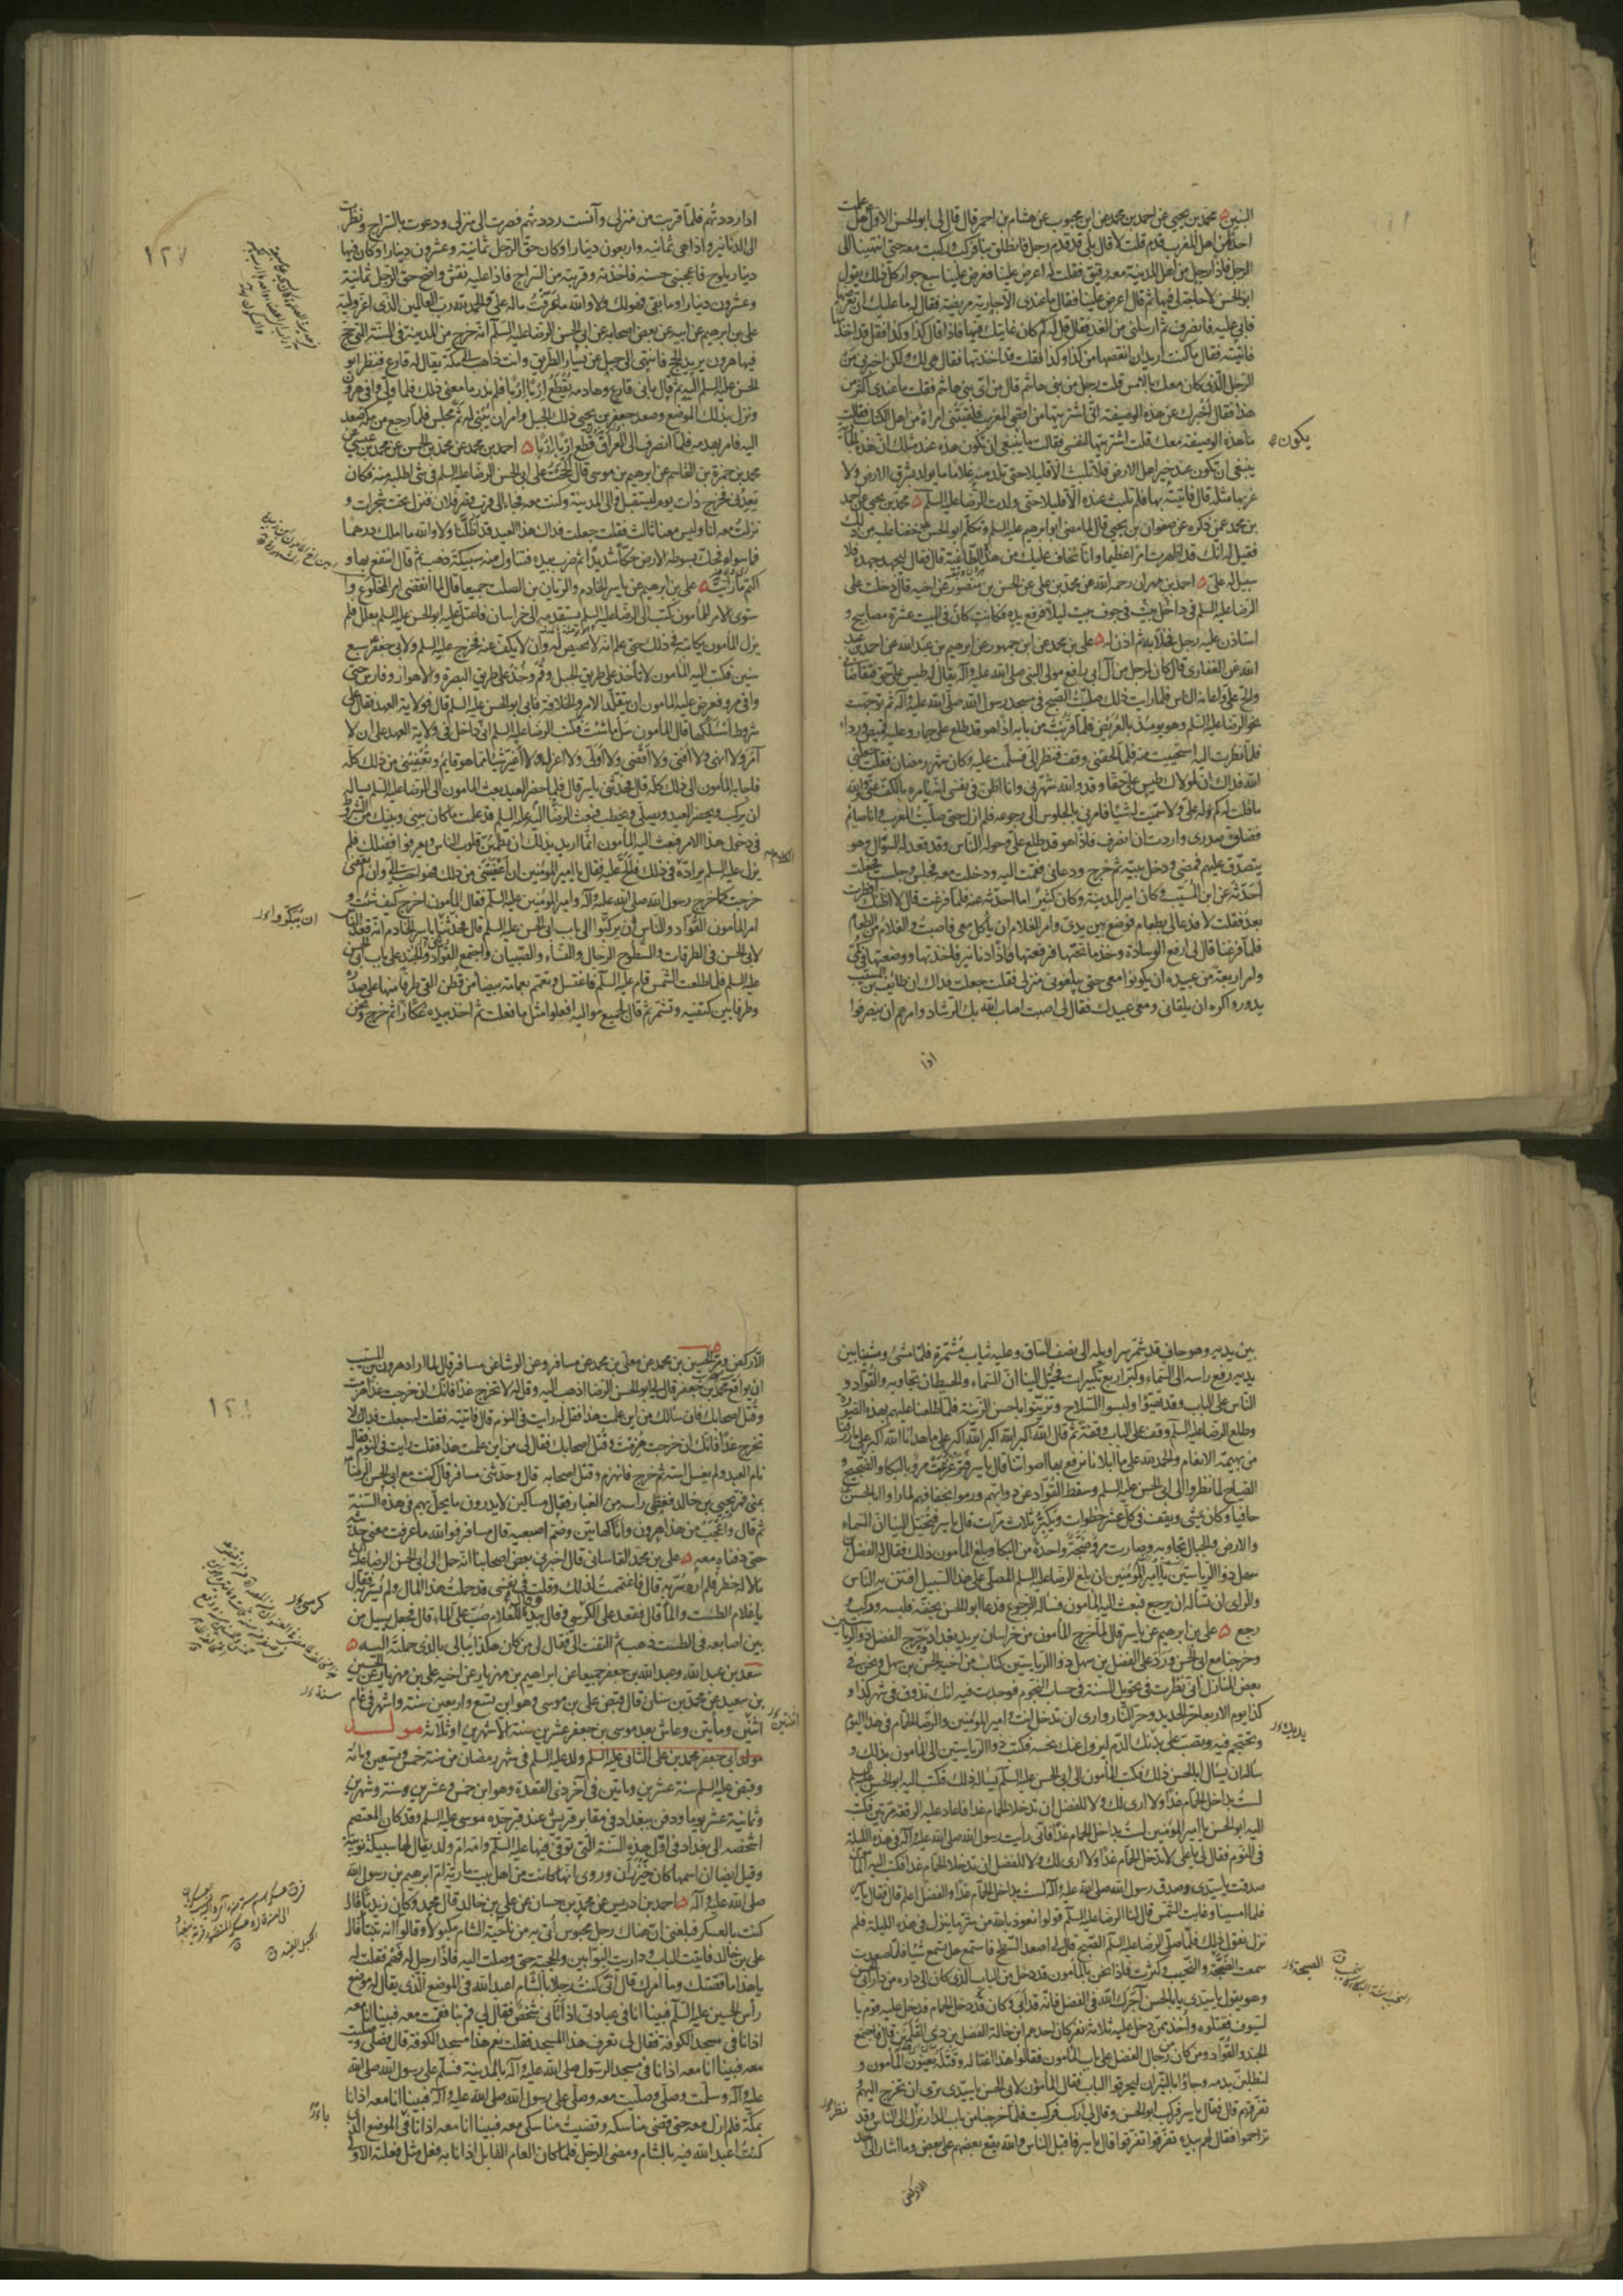 البنين محمد بن يحيى عن احمد بن محمد عن ابن محبوب عن هشام بن احمر قال قال لي ابو الحسن الاول هل علمت
احدا من اهل المغرب قدم قلت لا قال بلى قد قدم رجل فانطلق بنا فركب وركبت معه حتى انتهينا الى
الرجل فاذا رجل من اهل المدينة معه رقيق فقلت له اعرض علينا فعرض علينا سبع جوار كل ذلك يقول
ابو الحسن لا حاجة لي فيها ثم قال اعرض علينا فقال ما عندي الا جارية مريضة فقال له ما عليك ان تعرضها
فابى عليه فانصرف ثم ارسلني من الغد فقال قل له كم كان غايتك فيها فاذا قال كذا وكذا فقل قد اخذتها
فاتيته فقال ما كنت اريد ان انقصها من كذا وكذا فقلت قد اخذتها فقال هي لك ولكن اخبرني من
الرجل الذي كان معك بالامس قلت رجل من بني هاشم قال من اي بني هاشم فقلت ما عندي اكثر من
هذا فقال اخبرك عن هذه الوصيفة اني اشتريتها من اقصى المغرب فلقيتني امراة من اهل الكتاب فقالت
ما هذه الوصيفة معك قلت اشتريتها لنفسي فقالت ما ينبغي ان تكون هذه عند مثلك ان هذه الجارية
يكون
ينبغي ان تكون عند خير اهل الارض فلا تلبث الا قليلا حتى تلد منه غلاما ما يولد بشرق الارض ولا
غربها مثله قال فاتيته بها فلم تلبث عنده الا قليلا حتى ولدت الرضا عليه السلم محمد بن يحيى عن احمد
بن محمد عمن ذكره عن صفوان بن يحيى قال لما مضى ابو ابرهيم عليه السلم وتكلم ابو الحسن خفنا عليه من ذلك
فقيل له انك قد اظهرت امرا عظيما وانا نخاف عليك من هذا الطاغية قال فقال ليجهد جهده فلا
سبيل له علي احمد بن مهران رحمه الله عن محمد بن علي عن الحسن بن منصور عن اخيه قال دخلت على
الرضا عليه السلم في بيت داخل في جوف بيت ليلا فرفع يده فكانت كان في البيت عشرة مصابيح و
استاذن عليه رجل فخلا يده ثم اذن له علي بن محمد عن ابن جمهور عن ابرهيم بن عبد الله عن احمد بن عبد
الله عن الغفاري قال كان لرجل من آل ابي رافع مولى النبي صلى الله عليه وآله يقال له طيس علي حق فتقاضاني
والح علي واعانه الناس فلما رايت ذلك صليت الصبح في مسجد رسول الله صلى الله عليه وآله ثم توجهت
نحو الرضا عليه السلم وهو يومئذ بالعريض فلما قربت من بابه اذا هو قد طلع على حمار وعليه قميص ورداء
فلما نظرت اليه استحييت منه فلما لحقني وقف فنظر الي فسلمت عليه وكان شهر رمضان فقلت جعلني
الله فداك ان لمولاك طيس علي حقا وقد والله شهرني وانا اظن في نفسي انه يامره بالكف عني ووالله
ما قلت له كم له علي ولا سميت له شيئا فامرني بالجلوس الى رجوعه فلم ازل حتى صليت المغرب وانا صايم
فضاق صدري واردت ان انصرف فاذا هو قد طلع علي وحوله الناس وقد قعد له السؤال وهو
يتصدق عليهم فمضى ودخل بيته ثم خرج ودعاني فقمت اليه ودخلت معه فجلس وجلست فجعلت
احدثه عن ابن المسيب وكان امير المدينة وكان كثيرا ما احدثه عنه فلما فرغت قال لا اظنك افطرت
بعد فقلت لا فدعا لي بطعام فوضع بين يدي وامر الغلام ان ياكل معي فاصبت والغلام من الطعام
فلما فرغنا قال لي ارفع الوسادة وخذ ما تحتها فرفعتها فاذا دنانير فاخذتها ووضعتها في كمي
وامر اربعة من عبيده ان يكونوا معي حتى يبلغوني منزلي فقلت جعلت فداك ان طائف بن المسيب
يدور واكره ان يلقاني ومعي عبيدك فقال لي اصبت اصاب الله بك الرشاد وامرهم ان ينصرفوا
اذا
اذا رددتهم فلما قربت من منزلي وآنست رددتهم فصرت الى منزلي ودعوت بالسراج ونظرت
الى الدنانير واذا هي ثمانية واربعون دينارا وكان حق الرجل ثمانية وعشرون دينارا وكان فيها
١٢٧
دينار يلوح فاعجبني حسنه فاخذته وقربته من السراج فاذا عليه نقش واضح حق الرجل ثمانية
وعشرون دينارا وما بقي فهو لك ولا والله ما عرفت ما له علي والحمد لله رب العالمين الذي اعز وليه
علي بن ابرهيم عن ابيه عن بعض اصحابه عن ابي الحسن الرضا عليه السلم انه خرج من المدينة في السنة التي حج
فيها هرون يريد الحج فانتهى الى جبل عن يسار الطريق وانت ذاهب الى مكة يقال له فارع فنظر ابو
الحسن عليه السلم اليه ثم قال باني فارع وهادمه يقطع اربا اربا فلم ندر ما معنى ذلك فلما ولى وافى هرون
ونزل بذلك الموضع وصعد جعفر بن يحيى ذلك الجبل وامر ان يبنى له ثم مجلس فلما رجع من مكة صعد
اليه فامر بهدمه فلما انصرف الى العراق قطع اربا اربا احمد بن محمد عن محمد بن الحسن عن محمد بن عيسى عن
محمد بن حمزة بن القاسم عن ابرهيم بن موسى قال الححت على ابي الحسن الرضا عليه السلم في شئ اطلبه منه فكان
يعدني فخرج ذات يوم ليستقبل والي المدينة وكنت معه فجاء الى قرب قصر فلان فنزل تحت شجرات و
نزلت معه انا وليس معنا ثالث فقلت جعلت فداك هذا العيد قد اظلنا ولا والله ما املك درهما
فما سواه فحك بسوطه الارض حكا شديدا ثم ضرب بيده فتناول منه سبيكة ذهب ثم قال انتفع بها و
اكتم ما رايت علي بن ابرهيم عن ياسر الخادم والريان بن الصلت جميعا قال لما انقضى امر المخلوع وا
ستوى الامر للمامون كتب الى الرضا عليه السلم يستقدمه الى خراسان فاعتل عليه ابو الحسن عليه السلم بعلل فلم
يزل المامون يكاتبه في ذلك حتى علم انه لا محيص له وان لا يكف عنه فخرج عليه السلم ولابي جعفر سبع
سنين فكتب اليه المامون لا تاخذ على طريق الجبل وقم وخذ على طريق البصرة والاهواز وفارس حتى
وافى مرو فعرض عليه المامون ان يتقلد الامر والخلافة فابى ابو الحسن عليه السلم قال فولاية العهد فقال على
شروط اسئلكها قال المامون سل ما شئت فكتب الرضا عليه السلم اني داخل في ولاية العهد على ان لا
آمر ولا انهى ولا افتي ولا اقضي ولا اولي ولا اعزل ولا اغير شيئا مما هو قايم وتعفيني من ذلك كله
فاجابه المامون الى ذلك كله قال فحدثني ياسر قال فلما حضر العيد بعث المامون الى الرضا عليه السلم يساله
ان يركب ويحضر العيد ويصلي ويخطب فبعث الرضا اليه عليه السلم قد علمت ما كان بيني وبينك من الشروط
في دخول هذا الامر فبعث اليه المامون انما اريد بذلك ان تطمئن قلوب الناس ويعرفوا فضلك فلم
يزل عليه السلم يراده في ذلك فالح عليه فقال يا امير المؤمنين ان اعفيتني من ذلك فهو احب الي وان لم تعفني
الكلام
خرجت كما خرج رسول الله صلى الله عليه وآله وامير المؤمنين عليه السلم فقال المامون اخرج كيف شئت و
امر المامون القواد والناس ان يركبوا الى باب ابي الحسن عليه السلم قال فحدثنا ياسر الخادم انه قعد الناس
ان يبكروا
لابي الحسن في الطرقات والسطوح الرجال والنساء والصبيان واجتمع القواد والجند على باب ابي الحسن
عليه السلم فلما طلعت الشمس قام عليه السلم فاغتسل وتعمم بعمامة بيضاء من قطن القى طرفا منها على صدره
وطرفا بين كتفيه وتشمر ثم قال لجميع مواليه افعلوا مثل ما فعلت ثم اخذ بيده عكازا ثم خرج ونحن
بين يديه وهو حاف قد شمر سراويله الى نصف الساق وعليه ثياب مشمرة فلما مشى ومشينا بين
يديه رفع راسه الى السماء وكبر اربع تكبيرات فخيل الينا ان السماء والحيطان تجاوبه والقواد و
الناس على الباب وقد تهيؤا ولبسوا السلاح وتزينوا باحسن الزينة فلما طلعنا عليهم بهذه الصورة
وطلع الرضا عليه السلم وقف على الباب وقفة ثم قال الله اكبر الله اكبر الله اكبر على ما هدانا الله اكبر على ما رزقنا
من بهيمة الانعام والحمد لله على ما ابلانا نرفع بها اصواتنا قال ياسر فتزعزعت مرو بالبكاء والضجيج و
الصياح لما نظروا الى ابي الحسن عليه السلم وسقط القواد عن دوابهم ورموا بخفافهم لما راوا ابا الحسن
حافيا وكان يمشي ويقف في كل عشر خطوات ويكبر ثلاث مرات قال ياسر فتخيل الينا ان السماء
والارض والجبال تجاوبه وصارت مرو ضجة واحدة من البكاء وبلغ المامون ذلك فقال له الفضل بن
سهل ذو الرياستين يا امير المؤمنين ان بلغ الرضا عليه السلم المصلى على هذا السبيل افتتن به الناس
والراي ان تسأله ان يرجع فبعث اليه المامون فساله الرجوع فدعا ابو الحسن بخفه فلبسه وركب و
رجع علي بن ابرهيم عن ياسر قال لما خرج المامون من خراسان يريد بغداد وخرج الفضل ذو الرياستين
وخرجنا مع ابي الحسن ورد على الفضل بن سهل ذو الرياستين كتاب من اخيه الحسن بن سهل ونحن في
بعض المنازل اني نظرت في تحويل السنة في حساب النجوم فوجدت فيه انك تذوق في شهر كذا و
كذا يوم الاربعاء حر الحديد وحر النار وارى ان تدخل انت وامير المؤمنين والرضا الحمام في هذا اليوم
وتحتجم فيه ويصب على يديك الدم ليزول عنك نحسه فكتب ذو الرياستين الى المامون بذلك و
ساله ان يسال ابا الحسن ذلك فكتب المامون الى ابي الحسن عليه السلم يساله ذلك فكتب اليه ابو الحسن عليه السلم
لست بداخل الحمام غدا ولا ارى لك ولا للفضل ان تدخلا الحمام غدا فاعاد عليه الرقعة مرتين فكتب
اليه ابو الحسن يا امير المؤمنين لست بداخل الحمام غدا فاني رايت رسول الله صلى الله عليه وآله في هذه الليلة
في النوم فقال لي يا علي لا تدخل الحمام غدا ولا ارى لك ولا للفضل ان تدخلا الحمام غدا فكتب اليه المامون
صدقت يا سيدي وصدق رسول الله صلى الله عليه وآله لست بداخل الحمام غدا والفضل اعلم قال فقال ياسر
فلما امسينا وغابت الشمس قال لنا الرضا عليه السلم قولوا نعوذ بالله من شر ما ينزل في هذه الليلة فلم
نزل نقول ذلك فلما صلى الرضا عليه السلم الصبح قال لي اصعد السطح فاستمع هل تسمع شيئا فلما صعدت
سمعت الضجة والنحيب وكثرت فاذا نحن بالمامون قد دخل من الباب الذي كان الى داره من دار ابي الحسن
الصيحة
وهو يقول يا سيدي يا ابا الحسن آجرك الله في الفضل فانه قد ابى وكان قد دخل الحمام فدخل عليه قوم با
لسيوف فقتلوه واخذ ممن دخل عليه ثلاثة نفر كان احدهم ابن خالة الفضل بن ذي القلمين قال فاجتمع
الجند والقواد ومن كان من رجال الفضل على باب المامون فقالوا هذا اغتاله وقتله يعنون المامون و
لنطلبن بدمه وجاؤا بالنيران ليحرقوا الباب فقال المامون لابي الحسن يا سيدي ترى ان تخرج اليهم و
تفرقهم قال فقال ياسر فركب ابو الحسن وقال لي اركب فركبت فلما خرجنا من باب الدار نظر الى الناس وقد
تزاحموا فقال لهم بيده تفرقوا تفرقوا قال ياسر فاقبل الناس والله يقع بعضهم على بعض وما اشار الى احد
الا ركض
الا ركض ومر الحسين بن محمد عن معلى بن محمد عن مسافر وعن الوشاء عن مسافر قال لما اراد هرون بن المسيب
ان يواقع محمد بن جعفر قال لي ابو الحسن الرضا اذهب اليه وقل له لا تخرج غدا فانك ان خرجت غدا هزمت
١٢٨
وقتل اصحابك فان سالك من اين علمت هذا فقل له رايت في النوم قال فاتيته فقلت له جعلت فداك لا
تخرج غدا فانك ان خرجت هزمت وقتل اصحابك فقال لي من اين علمت هذا فقلت رايت في النوم فقال
نام العبد ولم يغسل استه ثم خرج فانهزم وقتل اصحابه قال وحدثني مسافر قال كنت مع ابي الحسن الرضا
بمنى فمر يحيى بن خالد فغطى راسه من الغبار فقال مساكين لا يدرون ما يحل بهم في هذه السنة
ثم قال واعجب من هذا هرون وانا كهاتين وضم اصبعيه قال مسافر فوالله ما عرفت معنى حديثه
حتى دفناه معه علي بن محمد القاساني قال اخبرني بعض اصحابنا انه حمل الى ابي الحسن الرضا عليه السلم
مالا له خطر فلم اره سر به قال فاغتممت لذلك وقلت في نفسي قد حملت هذا المال ولم يسر به فقال
يا غلام الطست والماء قال فقعد على الكرسي وقال بيده للغلام صب علي الماء قال فجعل يسيل من
كرسي
بين اصابعه في الطست ذهب ثم التفت الي فقال لي من كان هكذا يبالي بالذي حملته اليه
سعد بن عبد الله وعبد الله بن جعفر جميعا عن ابراهيم بن مهزيار عن اخيه علي بن مهزيار عن الحسين
بن سعيد عن محمد بن سنان قال قبض علي بن موسى وهو ابن تسع واربعين سنة واشهر في عام
سنة
اثنين ومأتين وعاش بعد موسى بن جعفر عشرين سنة الا شهرين او ثلاثة مولد
مولد ابي جعفر محمد بن علي الثاني عليه السلم ولد عليه السلم في شهر رمضان من سنة خمس وتسعين ومائة
وقبض عليه السلم سنة عشرين ومايتين في آخر ذي القعدة وهو ابن خمس وعشرين سنة وشهرين
وثمانية عشر يوما ودفن ببغداد في مقابر قريش عند قبر جده موسى عليه السلم وقد كان المعتصم
اشخصه الى بغداد في اول هذه السنة التي توفي فيها عليه السلم وامه ام ولد يقال لها سبيكة نوبية
وقيل ايضا ان اسمها كان خيزران وروي انها كانت من اهل بيت مارية ام ابرهيم بن رسول الله
صلى الله عليه وآله احمد بن ادريس عن محمد بن حسان عن علي بن خالد قال محمد وكان زيديا قال
كنت بالعسكر فبلغني ان هناك رجل محبوس اتي به من ناحية الشام مكبولا وقالوا انه تنبا قال
علي بن خالد فاتيت الباب وداريت البوابين والحجبة حتى وصلت اليه فاذا رجل له فهم فقلت له
يا هذا ما قصتك وما امرك قال اني كنت رجلا بالشام اعبد الله في الموضع الذي يقال له موضع
رأس الحسين عليه السلم فبينا انا في عبادتي اذ اتاني شخص فقال لي قم بنا فقمت معه فبينا انا معه
اذ انا في مسجد الكوفة فقال لي تعرف هذا المسجد فقلت نعم هذا مسجد الكوفة قال فصلى وصليت
معه فبينا انا معه اذ انا في مسجد الرسول صلى الله عليه وآله بالمدينة فسلم على رسول الله صلى الله
عليه وآله وسلمت وصلى وصليت معه وصلى على رسول الله صلى الله عليه وآله فبينا انا معه اذ انا
بمكة فلم ازل معه حتى قضى مناسكه وقضيت مناسكي معه فبينا انا معه اذ انا في الموضع الذي
كنت اعبد الله فيه بالشام ومضى الرجل فلما كان العام القابل اذا انا به فعل مثل فعلته الاولى